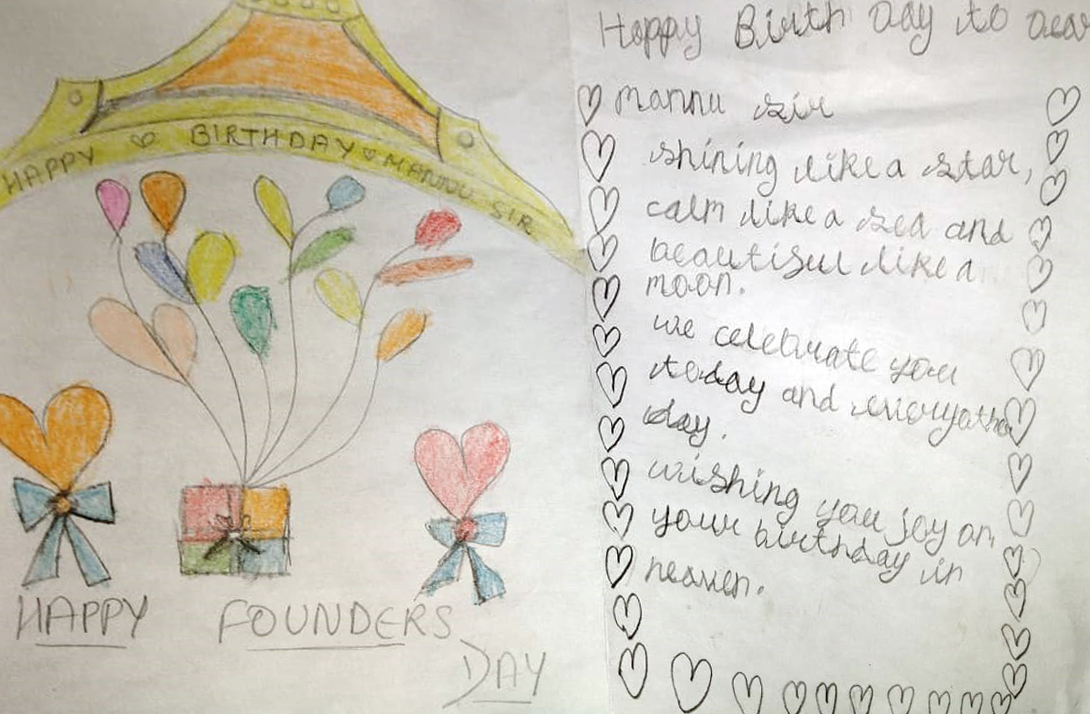 HAPPY ♡ BIRTHDAY ♡ MANNU SIR
HAPPY FOUNDERS
DAY
Happy Birth Day to dear
mannu sir
shining like a star,
calm like a sea and
beautiful like a
moon.
we celebrate you
today and everyother
day.
wishing you joy on
your birthday in
heaven.